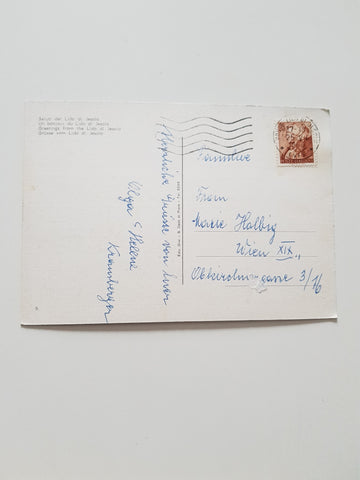 Saluti dal Lido di Jesolo
Un bonjour du Lido di Jesolo
Greetings from the Lido di Jesolo
Grüsse vom Lido di Jesolo
Herzliche Grüsse von
Olga & Helene
Kramberger
Familie
Frau
Marie Halbig
Wien XIX.,
Obkirchergasse 3/16